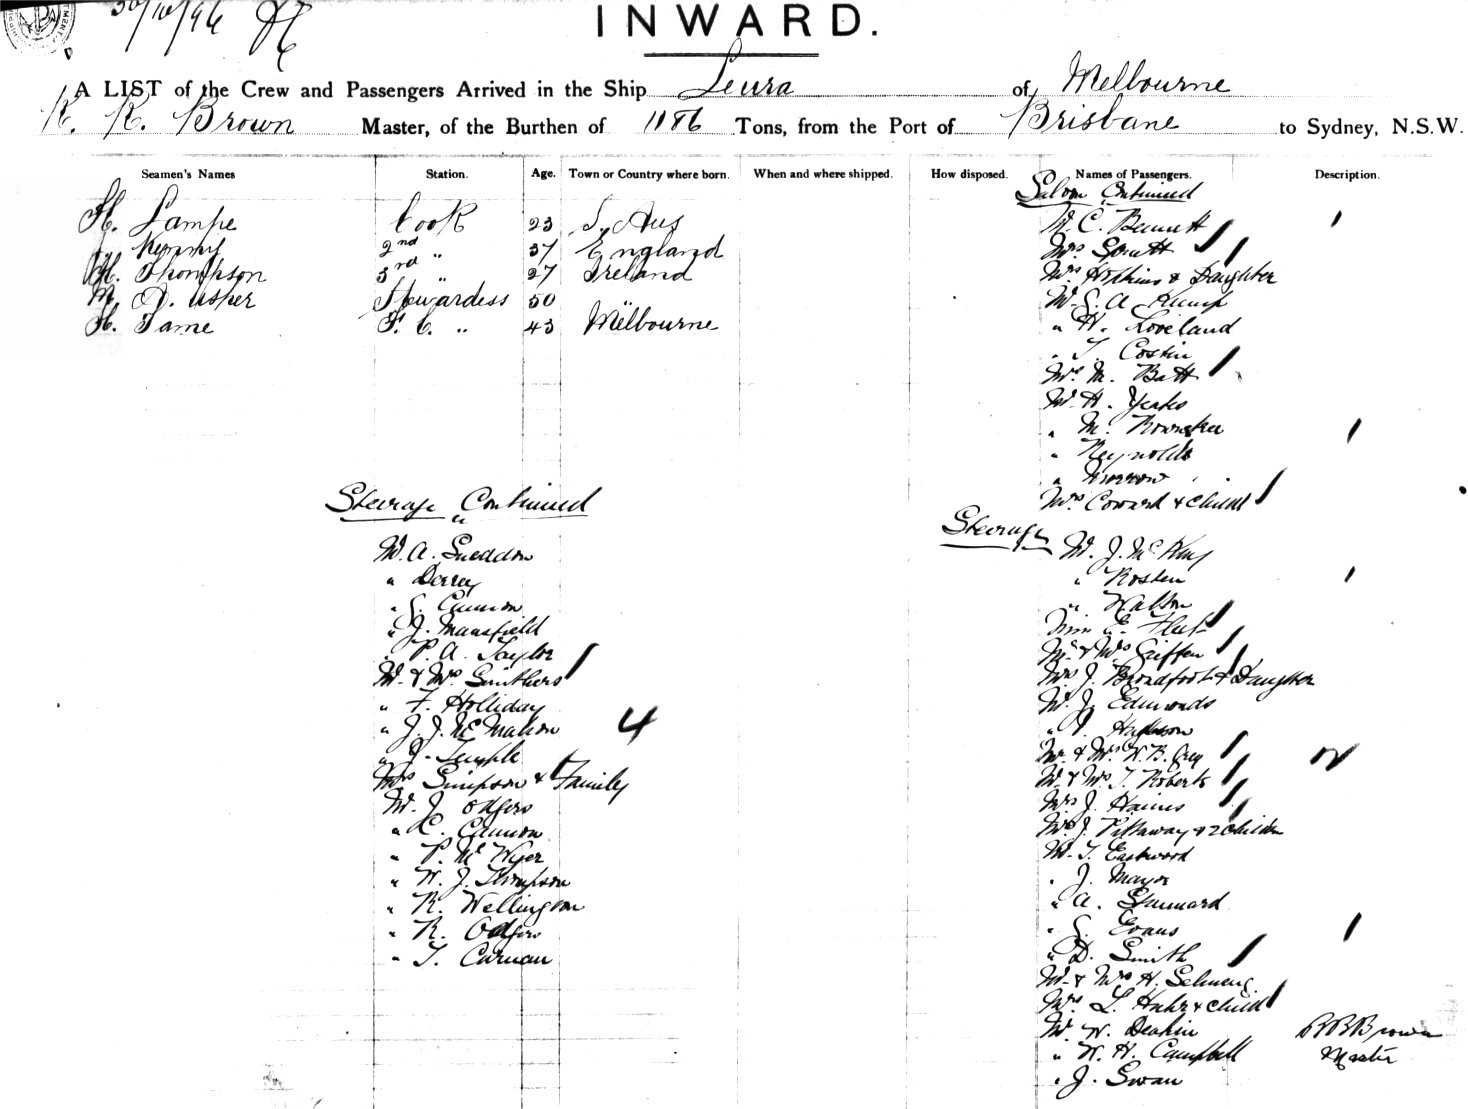 30/10/96
INWARD.
A LIST of the Crew and Passengers Arrived in the Ship Leura of Melbourne
K. K. Brown Master, of the Burthen of 1186 Tons, from the Port of Brisbane to Sydney, N.S.W.
Seamen's Names Station. Age. Town or Country where born. When and where shipped. How disposed. Names of Passengers. Description.
H. Lampe Cook 23 S. Aus
2nd " 37 England
H. Thompson 3rd " 27 Ireland
M. A. Usher Stewardess 50 "
H. Tame F. C. " 43 Melbourne
Saloon Continued
Mr. C. Bennett
Mrs
Mrs Hopkins & Daughter
Mr G. A. Kemp
" H. Loveland
" T. Costin
Mrs. M. Batt
Mr. H. Yeates
" M. Rowntree
" Reynolds
" Morrow
Mrs Coward & child
Steerage
Mr. J. Mc Kay
" Rosten
" Walton
Miss E. Fleet
Mr & Mrs Giffen
Mrs J. Broadfoot & Daughter
Mr. J. Edmonds
"
Mr & Mrs K. B. Grey
Mr & Mrs T. Roberts
Mrs J. Haines
Mrs J. Pittaway & 2 Children
Mr. T. Eastwood
" J. Mayor
" A. Stannard
" G. Evans
" D. Smith
Mr. & Mrs H.
Mrs L. & child
Mr W. Deakin
" W. H. Campbell
" J. Swan
Steerage Continued
Mr. A. Sneddon
" Derrey
" G. Cannon
" J. Mansfield
" P. A. Taylor
Mr. & Mrs Smithers
" F. Holliday
" J. J. Mc Mahon
" J. Temple
Mrs Simpson & Family
Mr. J. Odgers
" C. Cannon
" P. Mc Wyer
" W. J. Thompson
" R. Wellington
" R. Odgers
" T. Curnow
4
Brown
Master